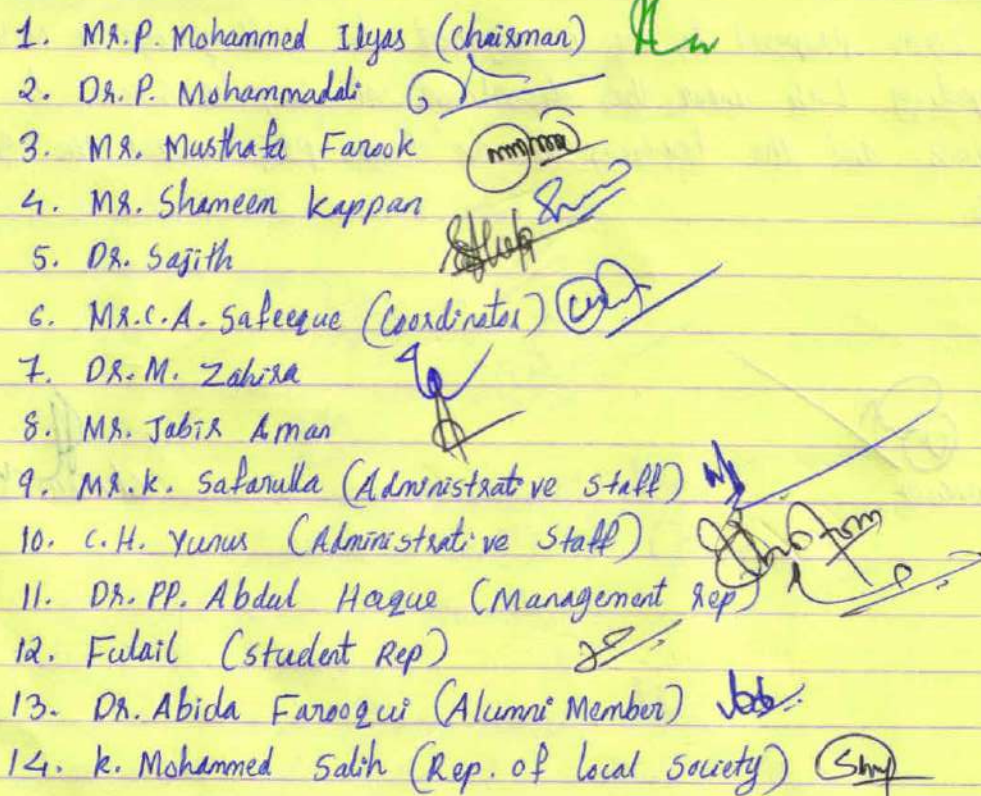 1. Mr. P. Mohammed Ilyas (Chairman)
2. Dr. P. Mohammadali
3. Mr. Musthafa Farook
4. Mr. Shameem Kappan
5. Dr. Sajith
6. Mr. C.A. Safeeque (Coordinator)
7. Dr. M. Zahira
8. Mr. Jabir Aman
9. Mr. K. Safarulla (Administrative Staff)
10. C.H. Yunus (Administrative Staff)
11. Dr. PP. Abdul Haque (Management Rep)
12. Fulail (Student Rep)
13. Dr. Abida Farooqui (Alumni Member)
14. K. Mohammed Salih (Rep. of local Society)